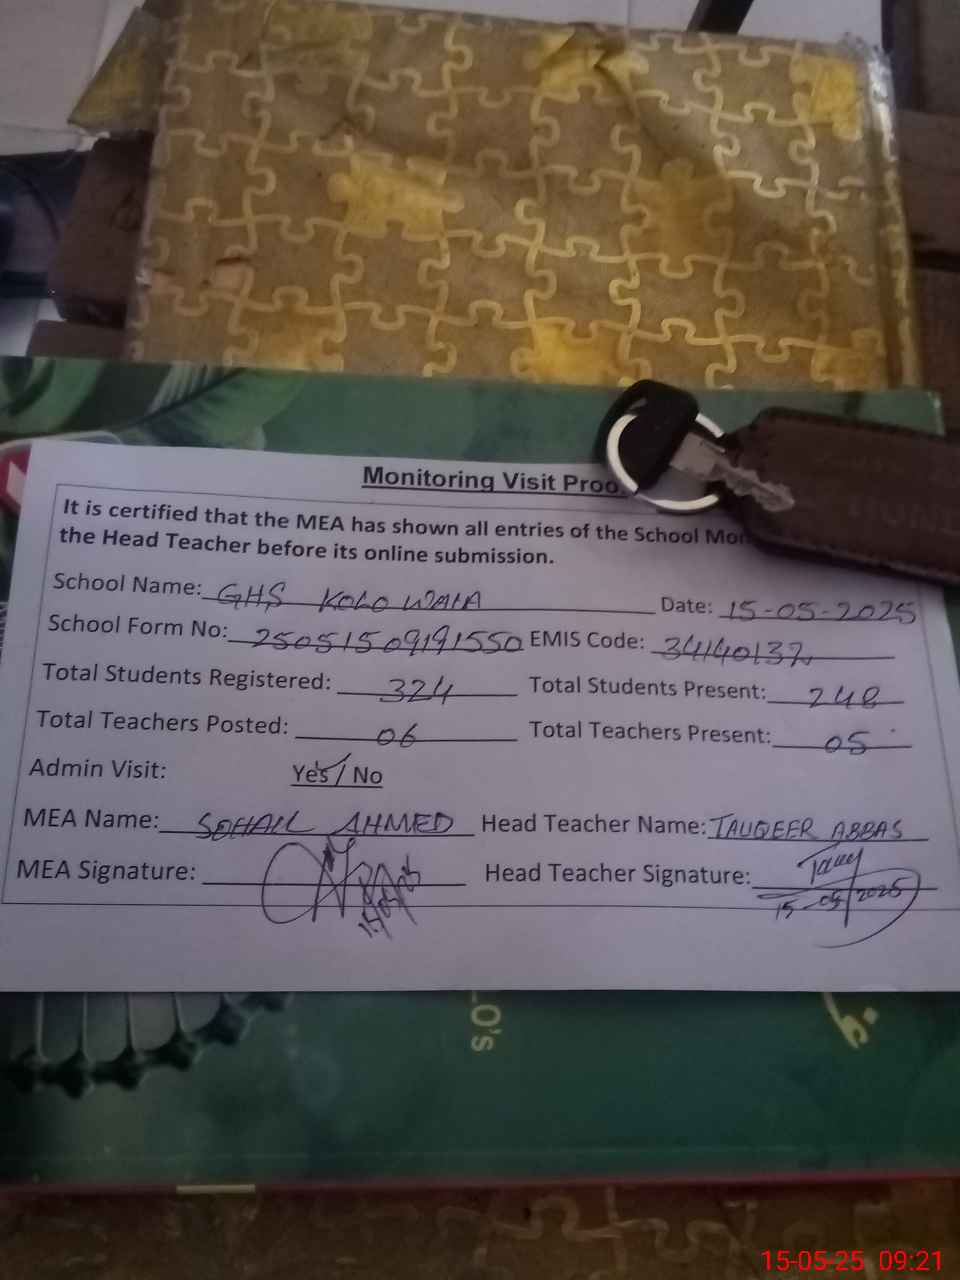 Monitoring Visit Proo
It is certified that the MEA has shown all entries of the School Mon
the Head Teacher before its online submission.
School Name: GHS KOLO WALA Date: 15-05-2025
School Form No: 25051509191550 EMIS Code: 34140137
Total Students Registered: 324 Total Students Present: 248
Total Teachers Posted: 06 Total Teachers Present: 05
Admin Visit: Yes / No
MEA Name: SOHAIL AHMED Head Teacher Name: TAUQEER ABBAS
MEA Signature: 15/05/25 Head Teacher Signature: 15-05/2025
LO's
15-05-25 09:21